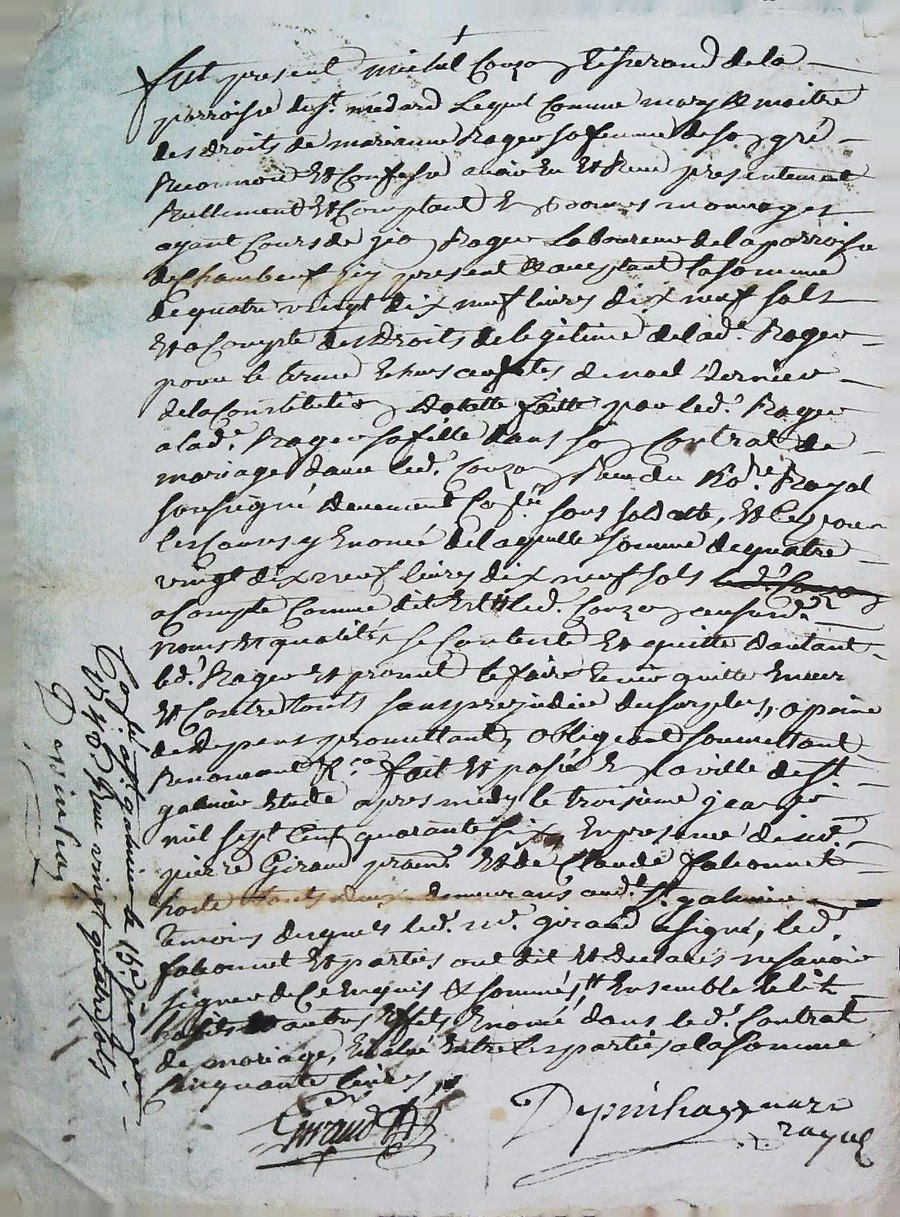 fut present michel Couzon Tisserand de la
parroisse de St. medard Lequel Comme mary & maitre
des droits de marianne Roger sa femme de son gré
Reconnoit Et Confesse avoir Eu Et Receu presentement
Reellement Et Comptant En bonnes monnoyes
ayant Cours de Roger Laboureur de la parroisse
de Chambeuf icy present & acceptant La somme
de quatre vingt dix neuf livres dix neuf sols
Et a Compte des Droits de legitime de lad. Roger
pour le terme aux fetes de noel dernier
de la Constitution Dotalle faitte par led. Roger
a lad. Roger sa fille dans son Contrat de
mariage dud. Couzon Receu du No.re Royal
soussigné sous sa datte, Et Ce pour
les Causes y Enoncé de laquelle somme de quatre
vingt dix neuf livres dix neuf sols
a Compte Comme dit Est led. Couzon
noms Et qualités se Contente Et quitte d'autant
led. Roger Et promet le faire tenir quitte Envers
Et Contre touts sans prejudice du surplus, a peine
de depens promettant, obligeant soumettant
Renonceant &.ca fait Et passé En la ville de St
galmier Etude apres midy le troisieme janvier
mil sept Cent quarante six En presence de
pierre Giraud Et de Claude falconnet
hoste touts deux demeurans aud. St. galmier
Temoins desquels led. Giraud a signé, led.
falconnet Et parties ont dit Et declaré ne savoir
signer de Ce Enquis & sommés Ensemble le lit
habits Et autres Effets Enoncé dans led. Contrat
de mariage, Evalué Entre les parties a la somme
Cinquante livres
Giraud
Depinhac nore
royal
a St. galmier le 15e janvier
1746 Receu vingt quatre sols
Depinhac